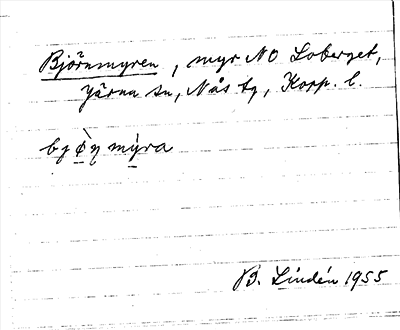 Björnmyren, myr NO Loberget,
Järna sn, Nås tg, Kopp. l.
bjø̀ɳmỳra
B. Lindén 1955